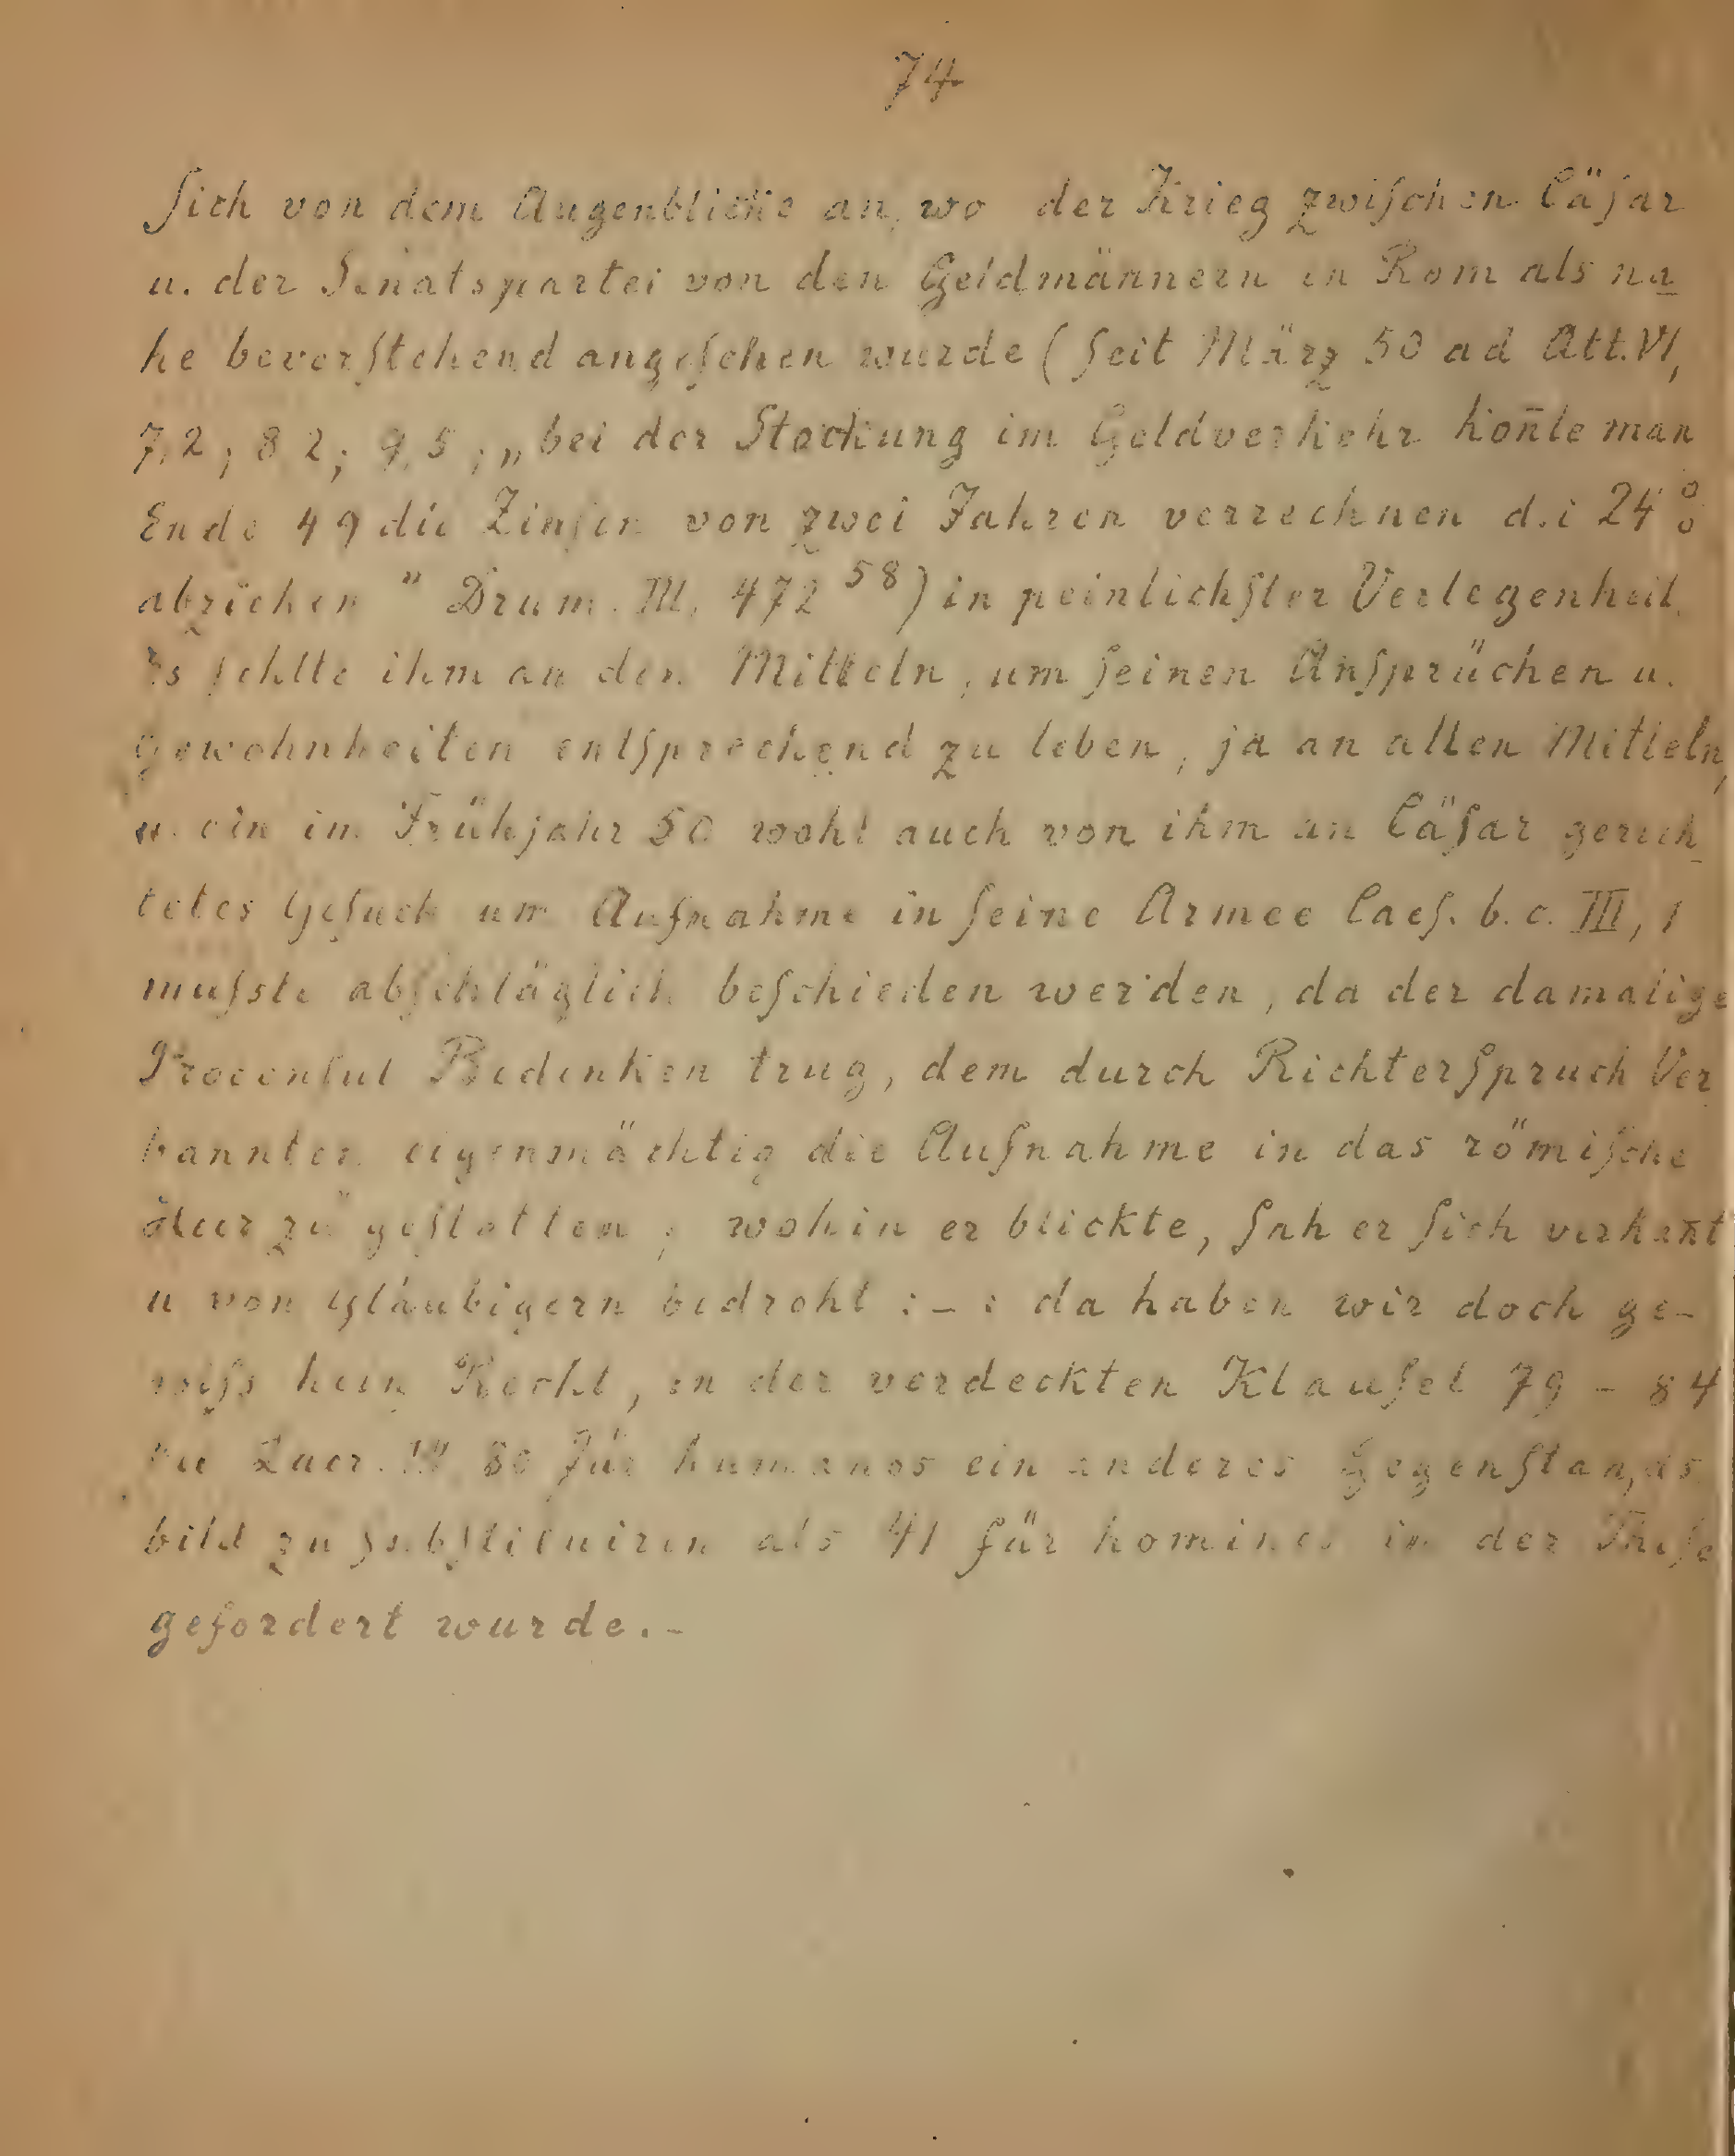 74
ſich von dem Augenblicke an, wo der Krieg zwiſchen Cäſar
u. der Senatspartei von den Geldmännern in Rom als na
he bevorſtehend angeſehen wurde (ſeit März 50 ad Att. VI,
7,2; 8 2; 9,5; „bei der Stockung im Geldverkehr kon̄te man
Ende 49 die Zinſen von zwei Jahren verrechnen d.i 24 %
abziehen" Drum. III, 472 58) in peinlichſter Verlegenheit.
Es fehlte ihm an den Mitteln, um ſeinen Anſprüchen u.
Gewohnheiten entſprechend zu leben, ja an allen Mitteln,
u. ein im Frühjahr 50 wohl auch von ihm an Cäſar gerich
tetes Geſuch um Aufnahme in ſeine Armee Caeſ. b. c. III, 1
muſste abſchläglich beſchieden werden, da der damalige
Proconſul Bedenken trug, dem durch Richterſpruch Ver
bannten eigenmächtig die Aufnahme in das römiſche
Heer zu geſtatten; wohin er blickte, ſah er ſich verkan̄t
u von Gläubigern bedroht :–: da haben wir doch ge–
wiſs kein Recht, in der verdeckten Klauſel 79 – 84
80 für humanos ein anderes Gegenſtands
bild zu ſubſtituiren als 41 für homines in der Theſe
gefordert wurde.–